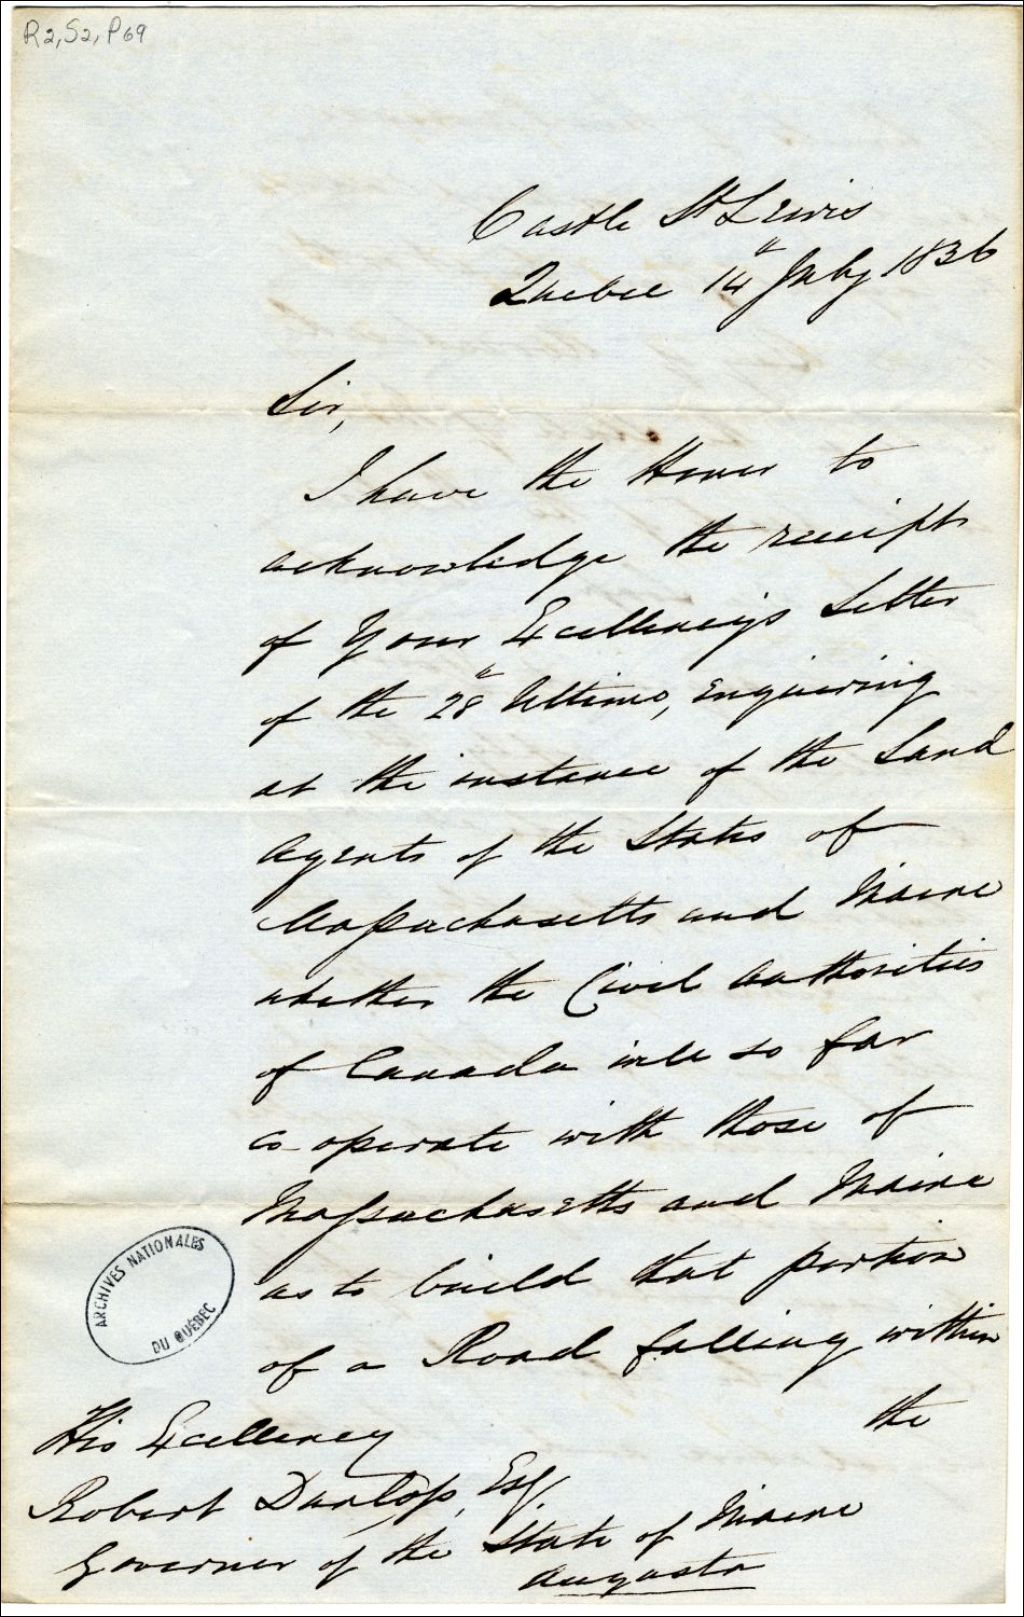 R2, S2, P69
Castle St Lewis
Quebec 14th July 1836
Sir,
I have the Honor to
acknowledge the receipt
of Your Excellency's Letter
of the 28th Ultimo, enquiring
at the instance of the Land
Agents of the States of
Massachusetts and Maine
whether the Civil Authorities
of Canada will so far
co-operate with those of
Massachusetts and Maine
as to build that portion
of a Road falling within
the
ARCHIVES NATIONALES
DU QUÉBEC
His Excellency
Robert Dunlop, Esq.
Governor of the State of Maine
Augusta